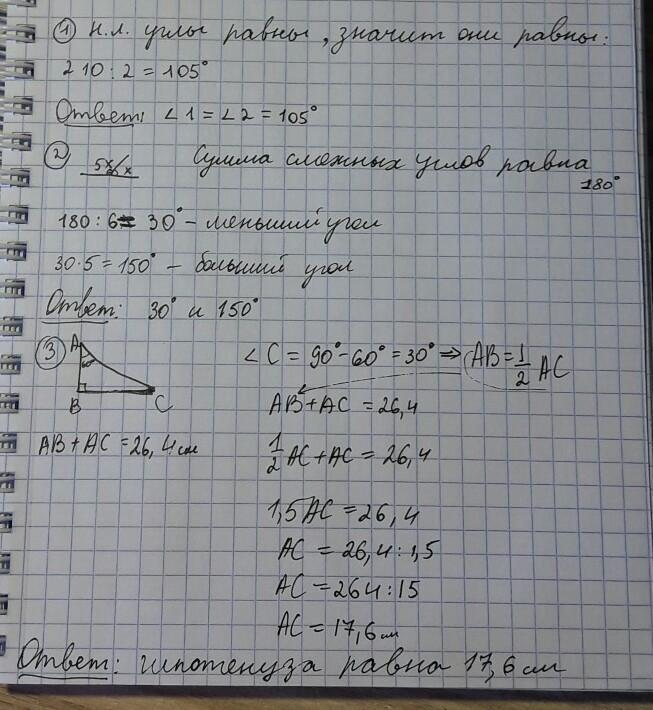 1) н.л. углы равны, значит они равны:
210 : 2 = 105°
Ответ: ∠1 = ∠2 = 105°
2) 5x/x Сумма смежных углов равна 180°
180 : 6 = 30° – меньший угол
30·5 = 150° – больший угол
Ответ: 30° и 150°
3) A 60° B C
∠C = 90° - 60° = 30° ⇒ AB = 1/2 AC
AB + AC = 26,4 см
AB + AC = 26,4
1/2 AC + AC = 26,4
1,5 AC = 26,4
AC = 26,4 : 1,5
AC = 264 : 15
AC = 17,6 см
Ответ: гипотенуза равна 17,6 см